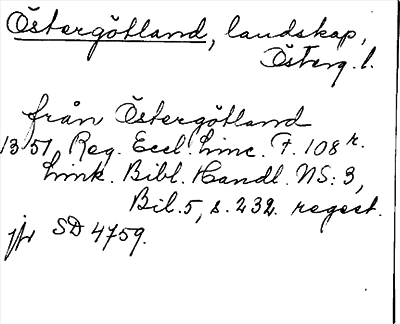 Östergötland, landskap,
Österg. l.
från Östergötland
1351, Reg. Eccl. Linc. F. 108 r.
Link. Bibl. Handl. NS: 3,
Bil. 5, s. 232. regest.
jfr SD 4759.